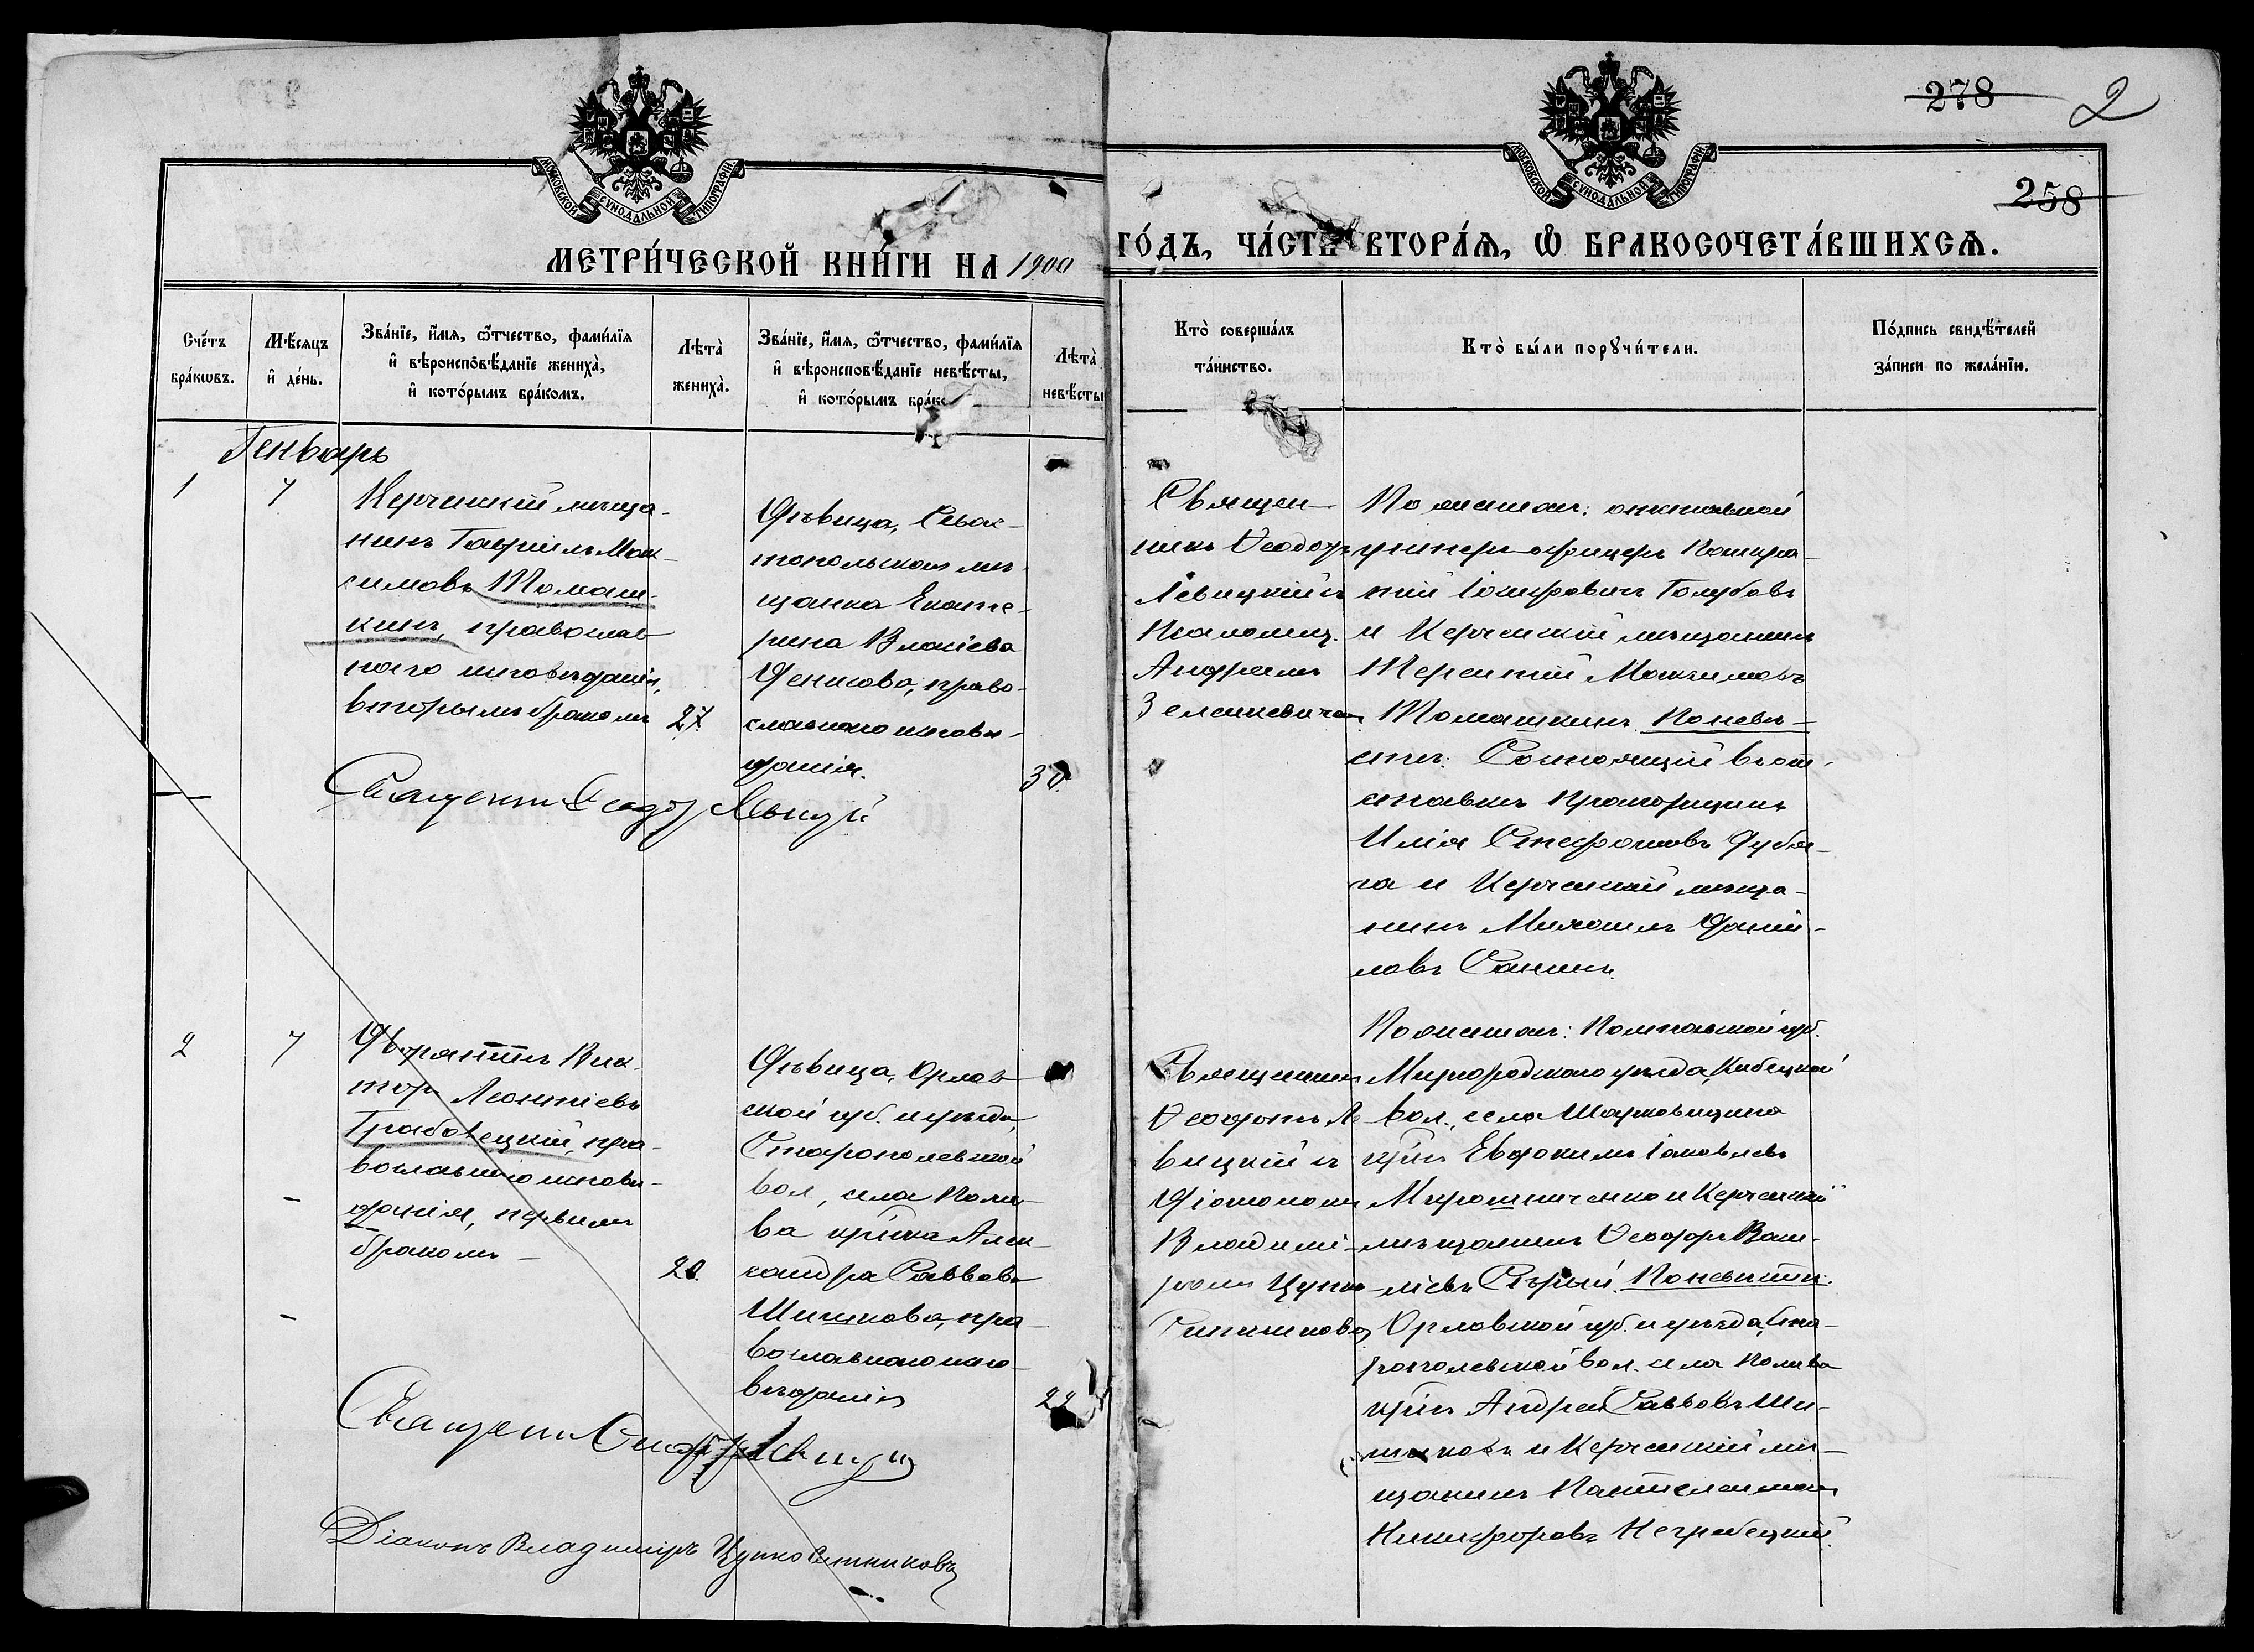 278 2
258
МОСКОВСКОЙ СУНОДАЛЬНОЙ ТИПОГРАФІИ
МОСКОВСКОЙ СУНОДАЛЬНОЙ ТИПОГРАФІИ
МЕТРИ́ЧЕСКОЙ КНИ́ГИ НА 1900 ГО́ДЪ, ЧА́СТЬ ВТОРА́Я, Ѿ БРАКОСОЧЕТА́ВШИХСЯ.
Сче́тъ
бра́кѡвъ.
Мѣ́сяцъ
и де́нь.
Зва́нїе, и́мя, ѻ́тчество, фами́лїя
и вѣроисповѣ́данїе жениха̀,
и кото́рымъ бра́комъ.
Лѣта̀
жениха̀.
Зва́нїе, и́мя, ѻ́тчество, фами́лїя
и вѣроисповѣ́данїе невѣ́сты,
и кото́рымъ бра́ко
Лѣта̀
невѣ́сты
Кто̀ соверша́лъ
та́инство.
Кто̀ бы́ли порꙋчи́тели.
По́дпись свидѣ́телей
за́писи по жела́нїю.
Генварь
1
7
Керченскій мѣща-
нинъ Гавріилъ Мак-
симовъ Томаш-
кинъ, православ
наго исповѣданія,
вторымъ бракомъ
27.
Дѣвица, Севас-
топольская мѣ-
щанка Екате-
рина Власіева
Денисова, право-
славнаго исповѣ-
данія.
30.
Священ
никъ Ѳеодоръ
Левицкій съ
Псаломщ.
Андреемъ
Зеленкевичемъ
По женихѣ: отставной
унтеръ-офицеръ Пом
пій Іосифовичъ Голубовъ
и Керченскій мѣщанинъ
Терентій Максимовъ
Томашкинъ. По невѣ-
стѣ: Состоящій въ от-
ставкѣ Прапорщикъ
Илія Стефановъ Дубя-
га и Керченскій мѣща-
нинъ Михаилъ Даніи-
ловъ Санинъ.
Священ Ѳеодоръ Левицкій
2
7
Дворянинъ Вик-
торъ Леонтіевъ
Грабовецкій, пра-
вославнаго исповѣ-
данія, первымъ
бракомъ
20.
Дѣвица, Орлов-
ской губ. и уѣзда,
Старопольской
вол., села
кр͠нка Алек-
сандра Саввова
Шишкова, пра-
вославнаго испо-
вѣданія
22
Священникъ
Ѳеодоръ Ле-
вицкій съ
Діакономъ
Владимі-
ромъ Цупко-
Ситниковъ
По женихѣ: Полтавской губ.
Миргородскаго уѣзда, Кибецкой
вол., села Шарковщина
кр͠нъ Евдокимъ Іаковлевъ
Мирошниченко и Керченскій
мѣщанинъ Ѳеодоръ Васи-
ліевъ Сѣрый. По невѣстѣ:
Орловской губ. и уѣзда, Ста-
ропольской вол. села
кр͠нъ Андрей Саввовъ Ши-
шковъ и Керченскій мѣ-
щанинъ Пантелеимонъ
Никифоровъ Неграбецкій.
Священ Ѳеодоръ Левицкій
Діаконъ Владиміръ Цупко Ситниковъ